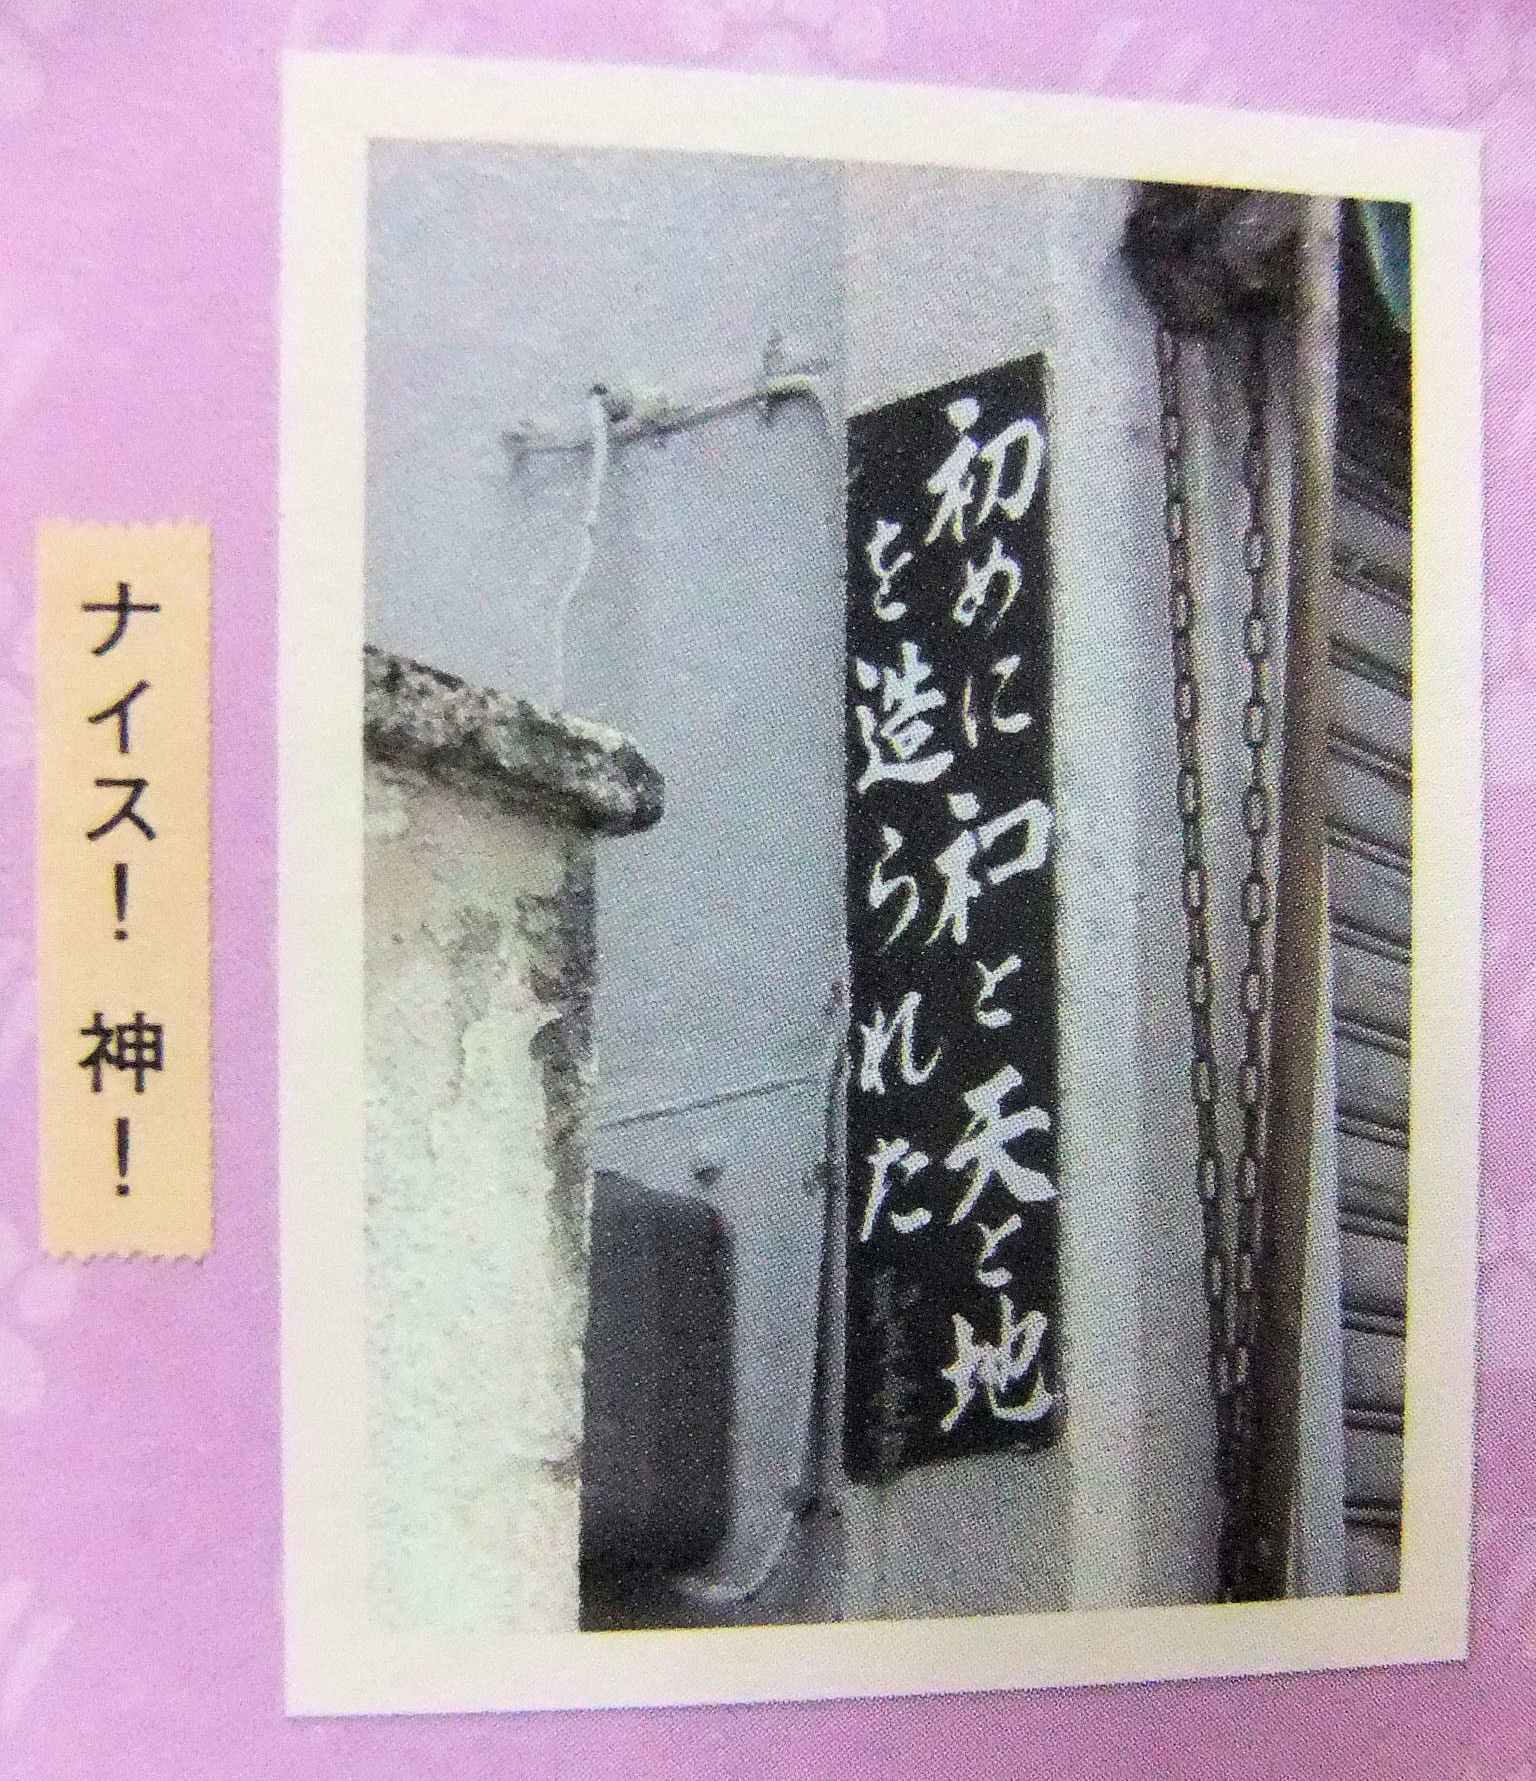 初めに和と天と地
を造られた
ナイス！神！